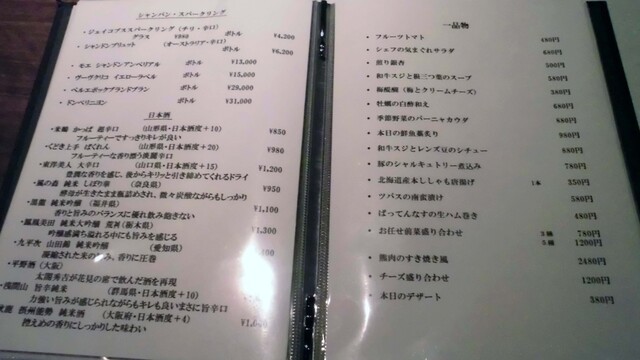 シャンパン・スパークリング
・ジェイコブススパークリング(チリ・辛口)
グラス ¥980 ボトル ¥4,200
・シャンドンブリュット (オーストラリア・辛口)
ボトル ¥6,200
・モエ シャンドンアンペリアル ボトル ¥13,000
・ヴーヴクリコ イエローラベル ボトル ¥15,000
・ベルエポックブランドブラン ボトル ¥28,000
・ドンペリニヨン ボトル ¥31,000
日本酒
かっぱ 超辛口 (山形県・日本酒度+10) ¥850
フルーティーですっきりキレが良い
・くどき上手 ばくれん (山形県・日本酒度+20) ¥980
フルーティーな香り漂う淡麗辛口
・東洋美人 大辛口 (山口県・日本酒度+15) ¥1,200
豊潤な香りを感じ、後からキリッと引き締めてくれるドライ
・風の森 純米 しぼり華 (奈良県) ¥950
酵母が生きたまま瓶詰めされ、微々炭酸ながらもしっかり
・黒龍 純米吟醸 (福井県) ¥1,100
香りと旨みのバランスに優れ飲み飽きない
・鳳凰美田 純米大吟醸 (栃木県) ¥1,300
吟醸感満ち溢れる中にも旨みを感じる
・九平次 山田錦 純米吟醸 (愛知県)
香りに圧巻
・平野酒(大阪)
太閤秀吉が花見の席で飲んだ酒を再現
・浅間山 旨辛純米 (群馬県・日本酒度+10)
力強い旨みが感じられながらもキレも良いまさに旨辛口
秋鹿 摂州能勢 純米酒 (大阪府・日本酒度+4)
控えめの香りにしっかりした味わい
一品物
・フルーツトマト 480円
・シェフの気まぐれサラダ 680円
・煎り銀杏 500円
・和牛スジと根三つ葉のスープ 580円
・海醍醐(梅とクリームチーズ) 380円
・牡蠣の白酢和え 680円
・季節野菜のバーニャカウダ 880円
・本日の鮮魚蕪炙り 980円
・和牛スジとレンズ豆のシチュー 880円
・豚のシャルキュトリー煮込み 780円
・北海道産本ししゃも唐揚げ 1本 350円
・フバスの南蛮漬け 580円
・ばってんなすの生ハム巻き 480円
・お任せ前菜盛り合わせ 3種 780円
5種 1200円
・熊肉のすき焼き風 2480円
・チーズ盛り合わせ 1200円
・本日のデザート 380円